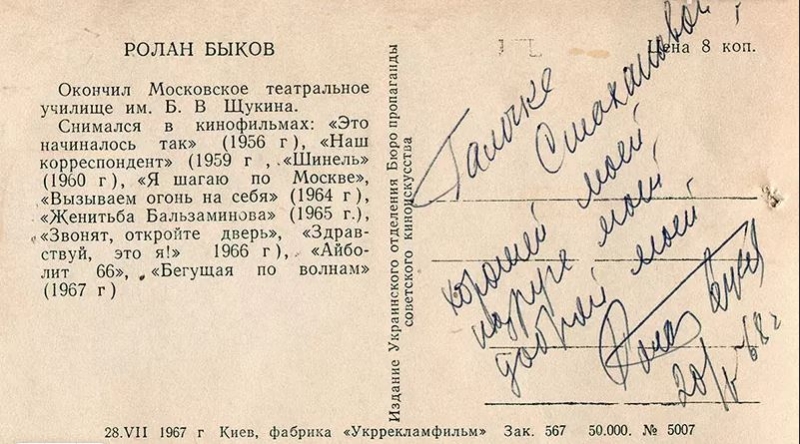 РОЛАН БЫКОВ
Окончил Московское театральное
училище им. Б. В Щукина.
Снимался в кинофильмах: «Это
начиналось так» (1956 г), «Наш
корреспондент» (1959 г , «Шинель»
(1960 г), «Я шагаю по Москве»,
«Вызываем огонь на себя» (1964 г),
«Женитьба Бальзаминова» (1965 г.),
«Звонят, откройте дверь», «Здрав-
ствуй, это я!» 1966 г), «Айбо-
лит 66», «Бегущая по волнам»
(1967 г)
Издание Украинского отделения Бюро пропаганды
советского киноискусства
Цена 8 коп.
Галочке
хорошей моей
подруге моей
доброй моей
Ролан Быков
28.VII 1967 г Киев, фабрика «Укррекламфильм» Зак. 567 50.000. № 5007